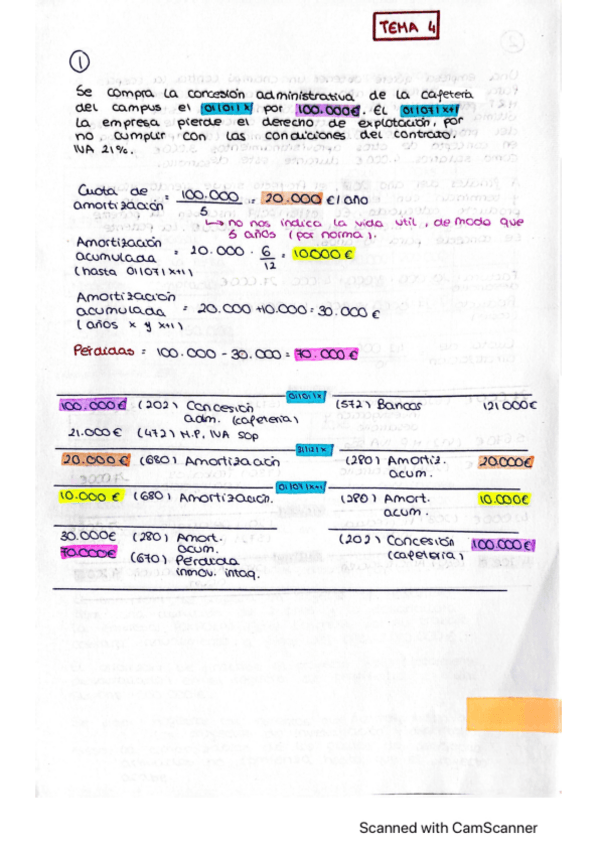 TEMA 4
1
Se compra la concesión administrativa, de la cafetería
del campus el 01/01/x por 100.000€. El 01/07/x+1
la empresa pierde el derecho de explotación, por
no cumplir con las condiciones del contrato.
IVA 21%.
Cuota de amortización = 100.000 / 5 = 20.000 €/año
↳ no nos indica la vida útil, de modo que
5 años (por norma).
Amortización acumulada (hasta 01/07/x+1) = 20.000 · 6/12 = 10000 €
Amortización acumulada (años x y x+1) = 20.000 + 10.000 = 30.000 €
Pérdidas = 100.000 - 30.000 = 70.000 €
01/01/x
100.000€ (202) Concesión adm. (cafetería) (572) Bancos 121000€
21.000€ (472) H.P. IVA SOP
31/12/x
20.000€ (680) Amortización (280) Amortiz. acum. 20.000€
01/07/x+1
10.000€ (680) Amortización. (280) Amort. acum. 10.000€
30.000€ (280) Amort. acum. (202) Concesión (cafetería) 100.000€
70.000€ (670) Pérdida inmov. intag.
Scanned with CamScanner